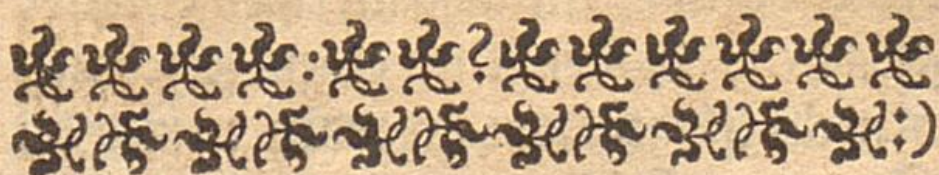 : ?
:)